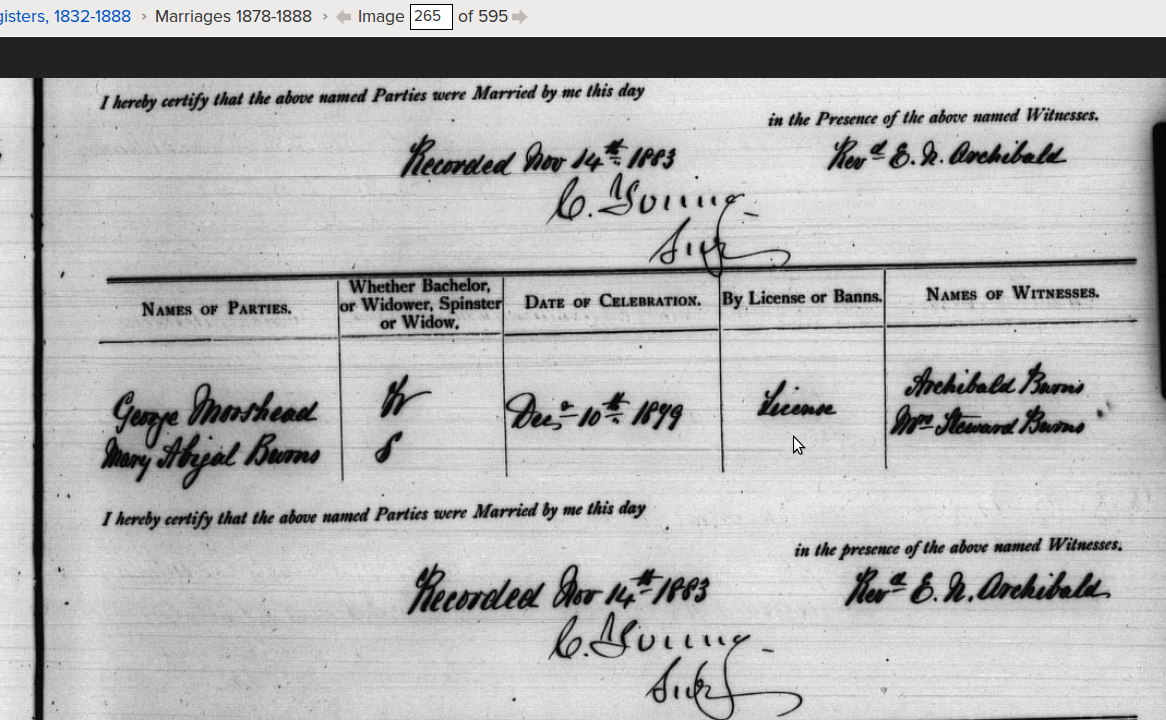 gisters, 1832-1888 › Marriages 1878-1888 › Image 265 of 595
I hereby certify that the above named Parties were Married by me this day
in the Presence of the above named Witnesses.
Recorded Nov 14th 1883
Revd E. N. Archibald
C. Young
NAMES OF PARTIES.
Whether Bachelor,
or Widower, Spinster
or Widow.
DATE OF CELEBRATION.
By License or Banns.
NAMES OF WITNESSES.
George Morshead
W
Decr 10th 1879
License
Archibald Burns
Mary Abijal Burns
S
Mrs Steward Burns
I hereby certify that the above named Parties were Married by me this day
in the presence of the above named Witnesses.
Recorded Nov 14th 1883
Revd E. N. Archibald
C. Young